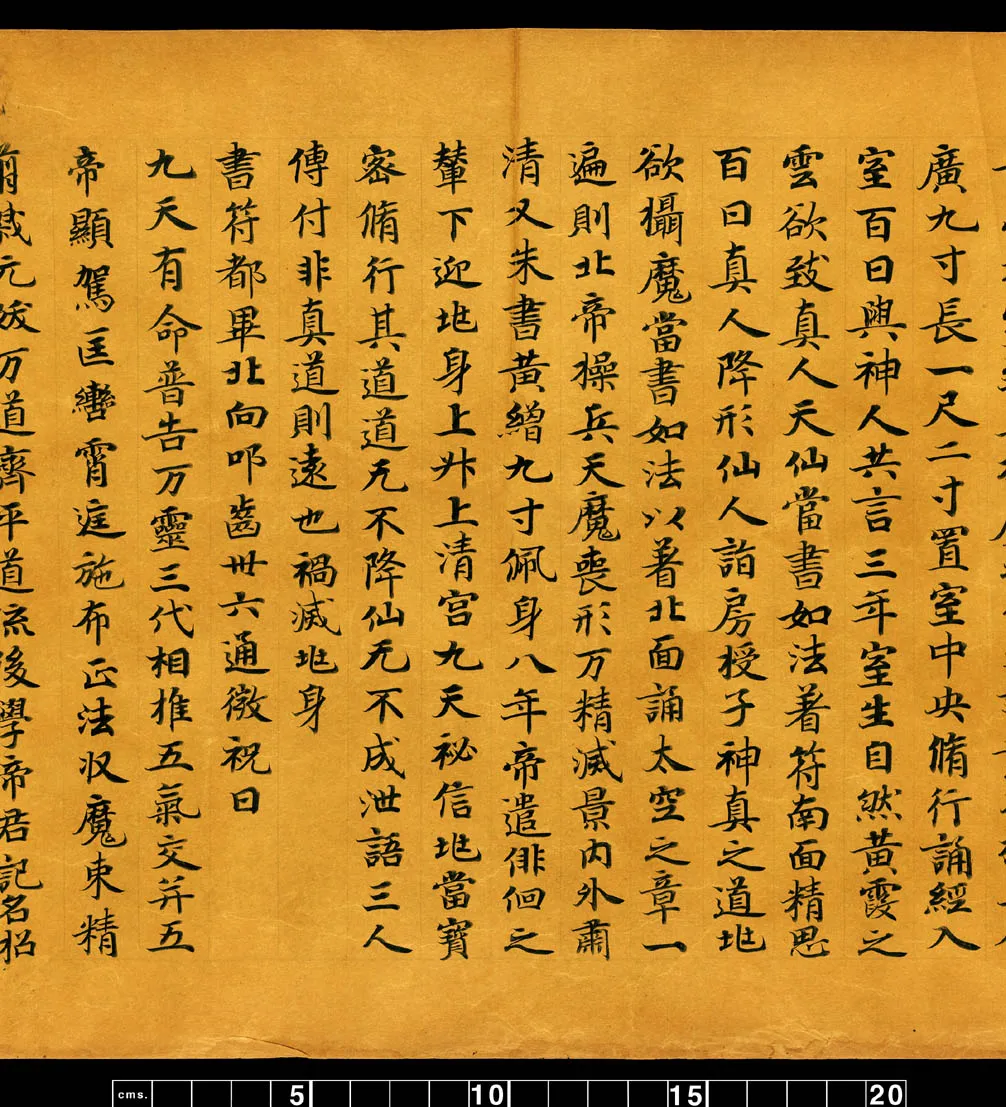 廣九寸長一尺二寸置室中央脩行誦經入
室百日與神人共言三年室生自然黃霞之
雲欲致真人天仙當書如法著符南面精思
百日真人降形仙人詣房授子神真之道地
欲攝魔當書如法以著北面誦太空之章一
遍則北帝操兵天魔喪形万精滅景內外肅
清又朱書黃繒九寸佩身八年帝遣徘徊之
輦下迎地身上升上清宮九天祕信地當寶
密脩行其道道无不降仙无不成泄語三人
傳付非真道則遠也禍滅地身
書符都畢北向叩齒卅六通微祝曰
九天有命普告万靈三代相推五氣交并五
帝顯駕匡轡霄庭施布正法收魔束精
元 万道齊平道流後學帝君記名招